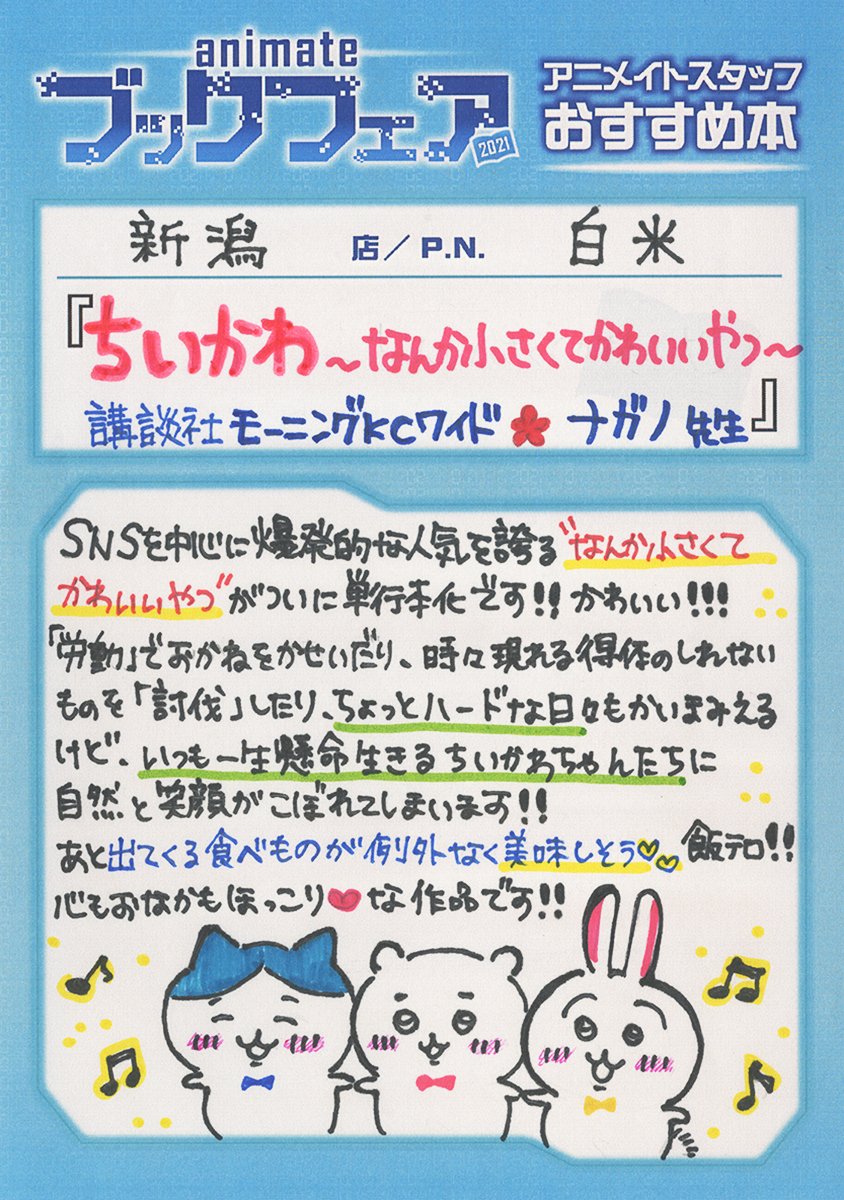 animate
ブックフェア
2021
アニメイトスタッフ
おすすめ本
新潟 店／P.N. 白米
『ちいかわ〜なんか小さくてかわいいやつ〜
講談社 モーニングKCワイド ナガノ先生』
SNSを中心に爆発的な人気を誇る"なんか小さくて
かわいいやつ"がついに単行本化です!! かわいい!!!
「労働」でおかねをかせいだり、時々現れる得体のしれない
ものを「討伐」したり、ちょっとハードな日々もかいまみえる
けど、いつも一生懸命生きるちいかわちゃんたちに
自然と笑顔がこぼれてしまいます!!
あと出てくる食べものが例外なく美味しそう♡♡飯テロ!!
心もおなかもほっこり♥な作品です!!